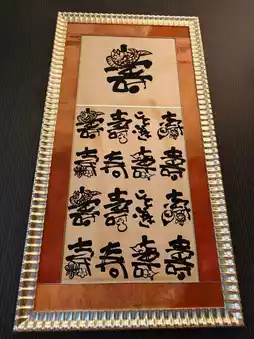 壽
壽 壽 壽 壽
壽 寿 壽 壽
壽 壽 壽 壽
壽 寿 壽 壽